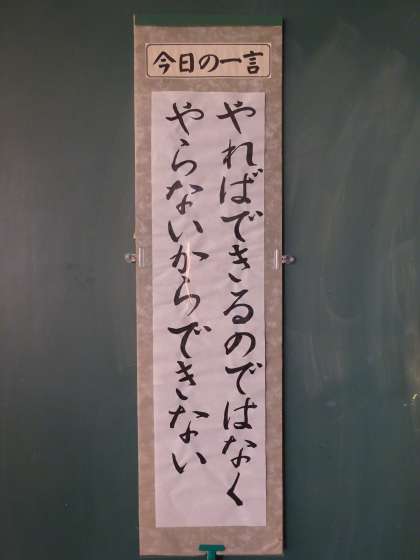 今日の一言
やればできるのではなく
やらないからできない